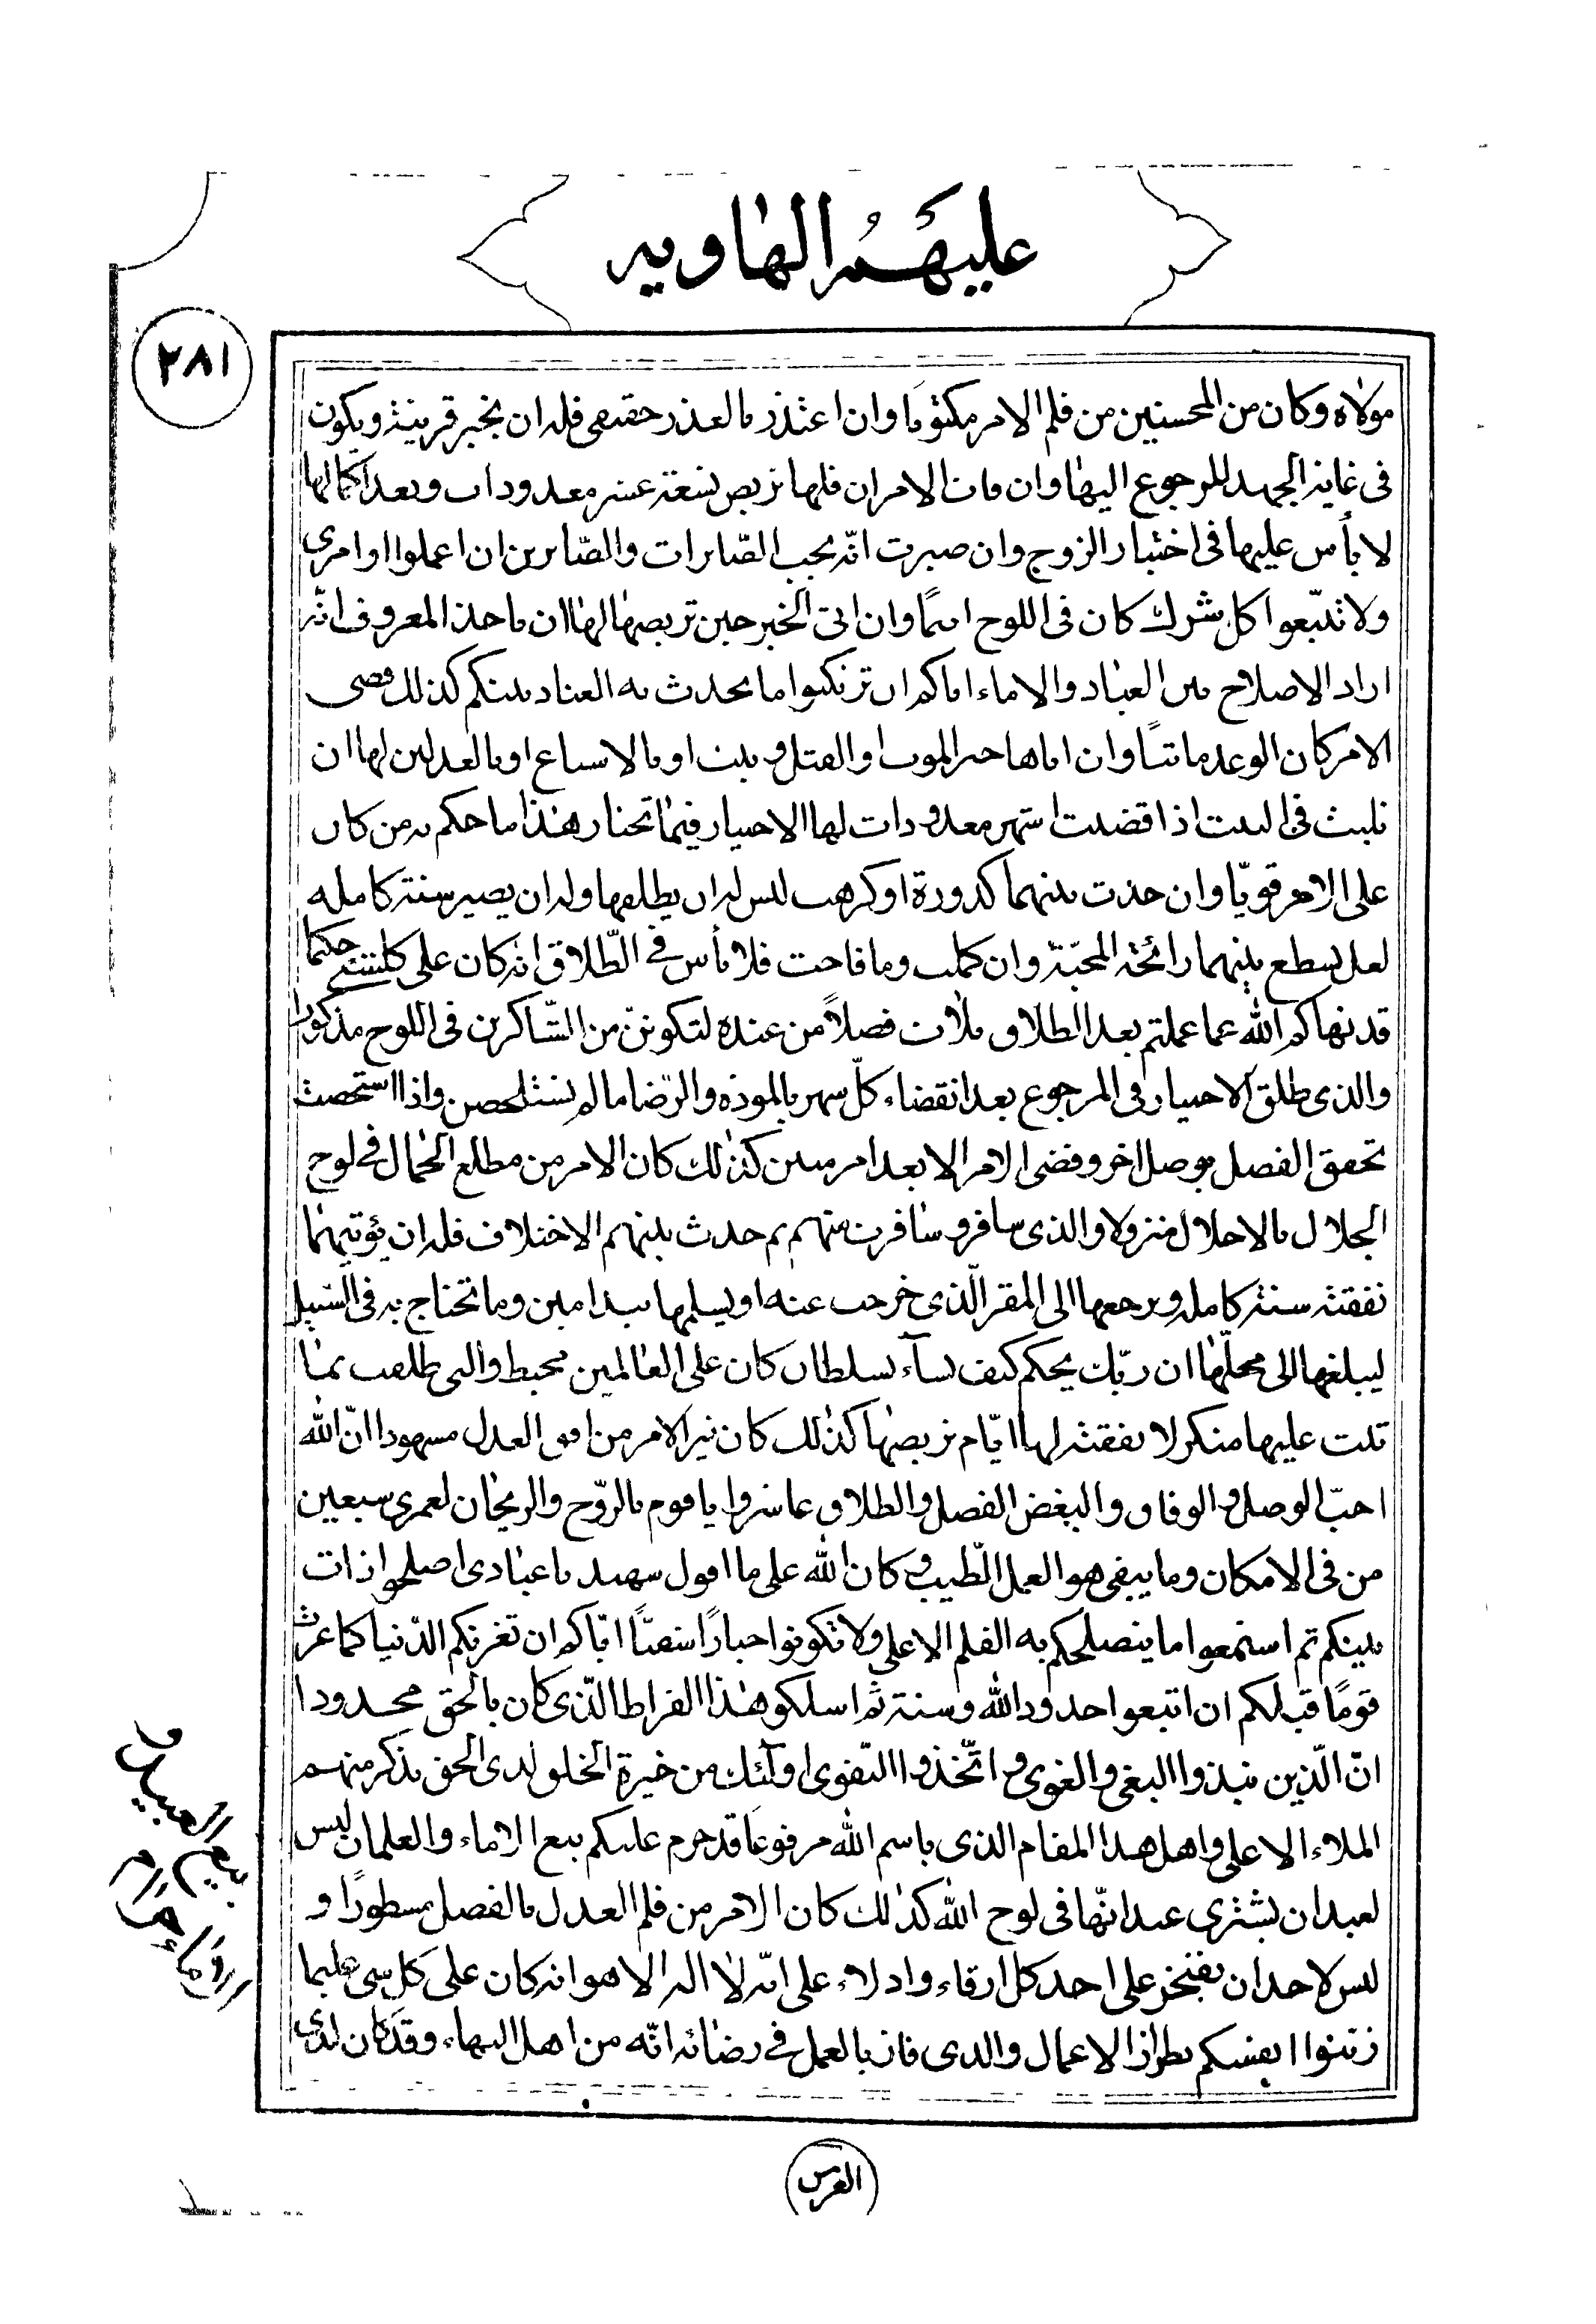 عليهم الهاويه
٢٨١
مولاه وكان من المحسنين من قلم الامر مكتوبا وان اعتذر بالعذر حقيقى فله ان يخبر قرينته ويكون
فى غاية الجهد للرجوع اليها وان فات الامران فلها تربص تسعة عشر معدودات وبعد اكمالها
لا بأس عليها فى اختيار الزوج وان صبرت انّه يحب الصّابرات والصّابرين ان اعملوا اوامرى
ولا تتبعوا كل مشرك كان فى اللوح اثيمًا وان اتى الخبر حين تربصها لها ان تاخذ المعروف انّه
اراد الاصلاح بين العباد والاماء اياكم ان ترتكبوا ما يحدث به العناد بينكم كذلك قضى
الامر كان الوعد ماتيًا وان اتاها خبر الموت او القتل وثبت او بالاشياع او بالعدلين لها ان
تلبث فى البيت اذا قضيت اشهر معدودات لها الاختيار فيما تختار هذا ما حكم به من كان
على الامر قويّا وان حدث بينهما كدورة او كره ليس له ان يطلقها وله ان يصبر سنة كامله
لعل يسطع بينهما رائحة المحبّة وان كملت وما فاحت فلا بأس فى الطّلاق انّه كان على كلشئ حكيما
قد نهاكم الله عما عملتم بعد الطلاق ثلاث فضلاً من عنده لتكوننّ من الشّاكرين فى اللوح مذكورا
والذى طلق الاختيار فى الرجوع بعد انقضاء كلّ شهر بالمودة والرّضا ما لم تستحصن واذا استحصنت
تحقق الفصل بوصل اخر وقضى الامر الا بعد امر مبين كذلك كان الامر من مطلع الجمال فى لوح
الجلال بالاجلال منزولا والذى سافر وسافرت منهم ثم حدث بينهم الاختلاف فله ان يؤتيها
نفقة سنة كامله ويرجعها الى المقر الّذى خرجت عنه او يسلمها بيد امين وما تحتاج به فى السّبيل
ليبلغها الى محلّها ان ربّك يحكم كيف يشآء بسلطان كان على العالمين محيط والتى طلقت بما
ثبت عليها منكر لا نفقة لها ايّام تربصها كذلك كان نير الامر من افق العدل مشهودا انّ الله
احبّ الوصل والوفاق وابغض الفصل والطلاق عاشروا يا قوم بالرّوح والريحان لعمرى سيفنى
من فى الامكان وما يبقى هو العمل الطّيب وكان الله على ما اقول شهيد يا عبادى اصلحوا ذات
بينكم ثم استمعوا ما ينصلحكم به القلم الاعلى ولا تكونوا جبارًا شقيًّا ايّاكم ان تغرنكم الدّنيا كما غرت
قومًا قبلكم ان اتبعوا حدود الله وسنته ثم اسلكوا هذا الصراط الّذى كان بالحق محدودا
انّ الّذين نبذوا البغى والغوى واتّخذوا التقوى اولئك من خيرة الخلق لدى الحق يذكرهم
الملاء الاعلى واهل هذا المقام الذى باسم الله مرفوعا قد حرم عليكم بيع الاماء والغلمان ليس
لعبد ان يشترى عبد انّها فى لوح الله كذلك كان الامر من قلم العدل بالفصل مسطورًا و
ليس لاحد ان يفتخر على احد كل ارقاء وادلاء على انّه لا اله الا هو انّه كان على كل شى عليما
زينوا انفسكم بطراز الاعمال والذى فاز بالعمل فى رضائه انّه من اهل البهاء وقد كان لدى
بيع العبيد و
الاماء حرام
العرس